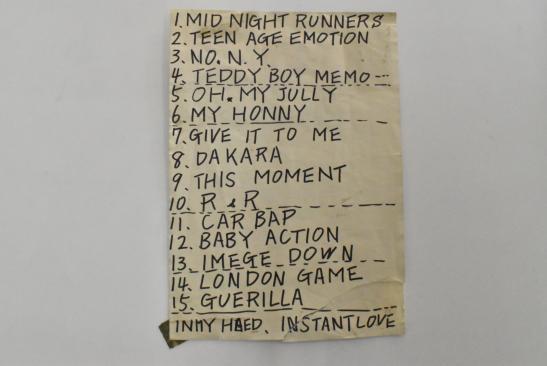 1. MID NIGHT RUNNERS
2. TEEN AGE EMOTION
3. NO. N. Y.
4. TEDDY BOY MEMO
5. OH. MY JULLY
6. MY HONNY
7. GIVE IT TO ME
8. DAKARA
9. THIS MOMENT
10. R & R
11. CAR BAP
12. BABY ACTION
13. IMEGE DOWN
14. LONDON GAME
15. GUERILLA
IN MY HAED. INSTANT LOVE